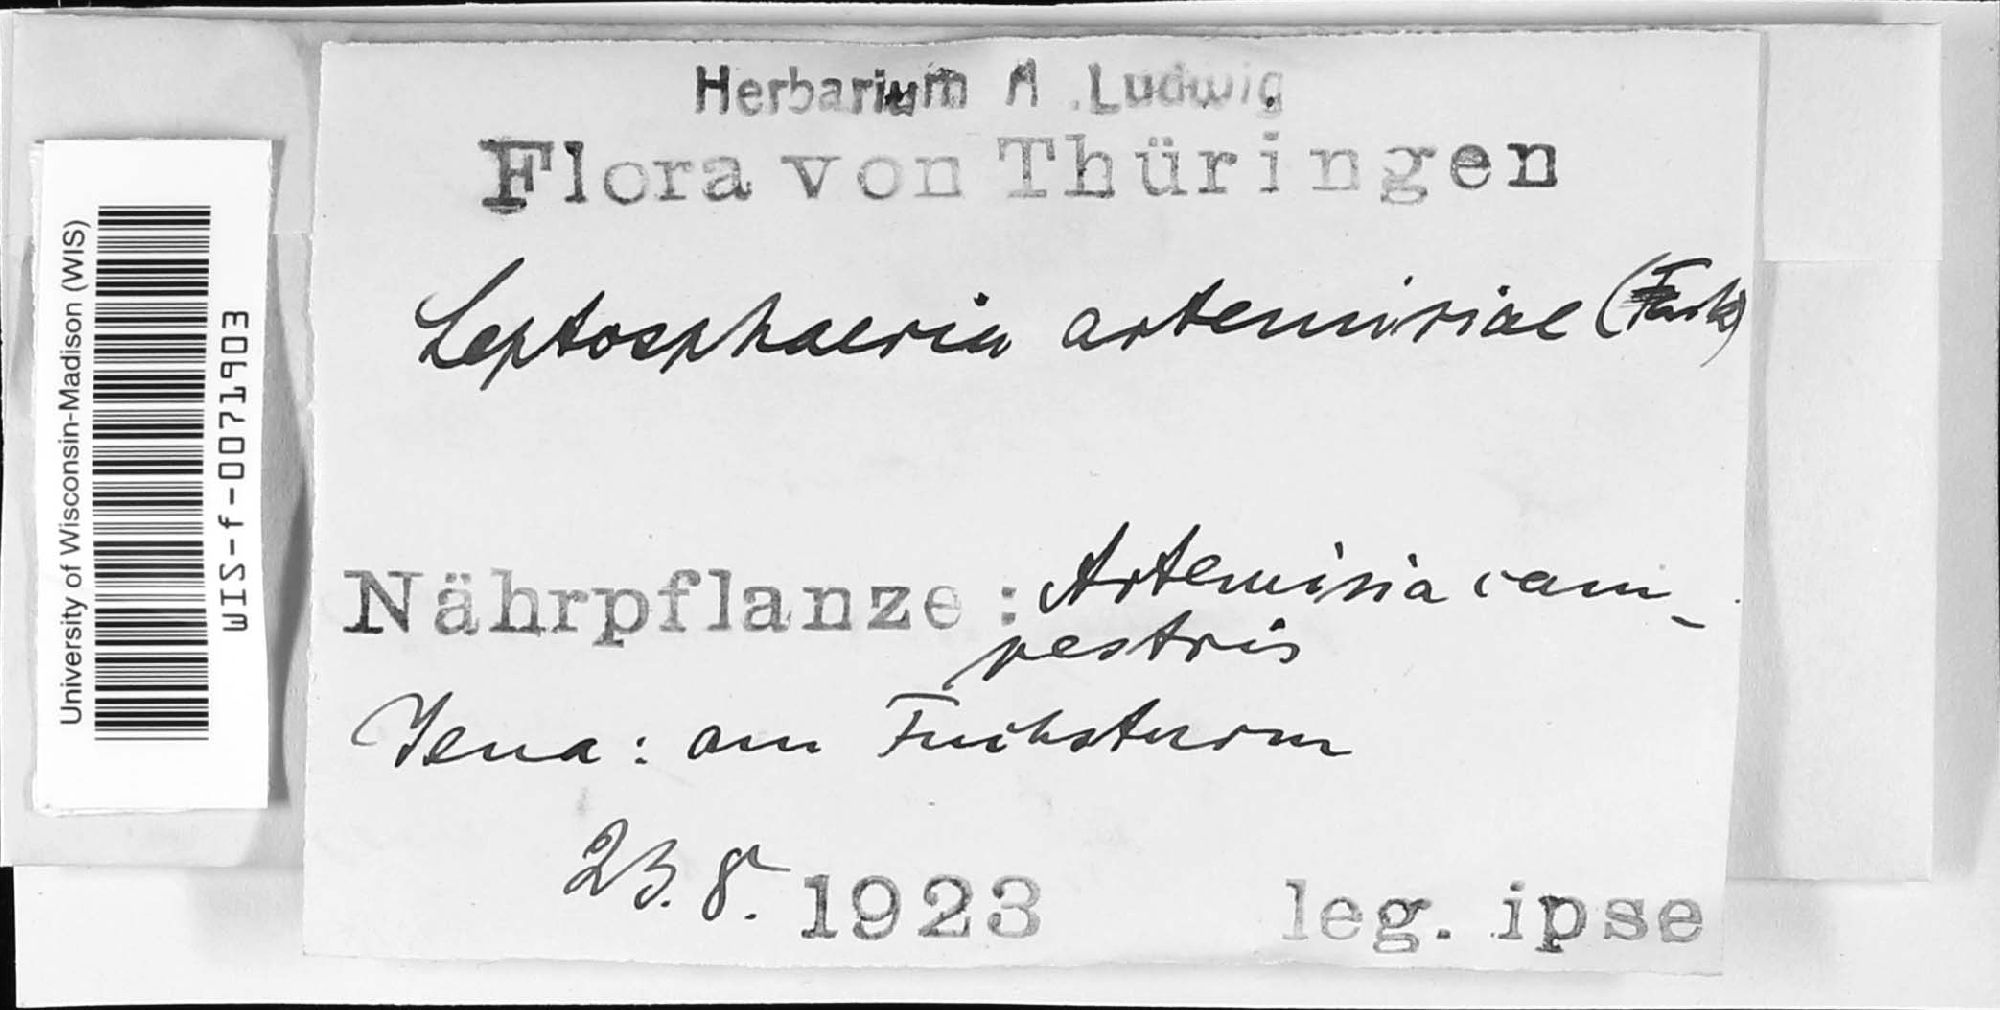 Herbarium A. Ludwig
Flora von Thüringen
Leptosphaeria artemisiae (Fuck)
Nährpflanze: Artemisia cam-
pestris
Jena: am Fuchsturm
23. 8. 1923 leg. ipse
University of Wisconsin-Madison (WIS)
WIS-f-0071903